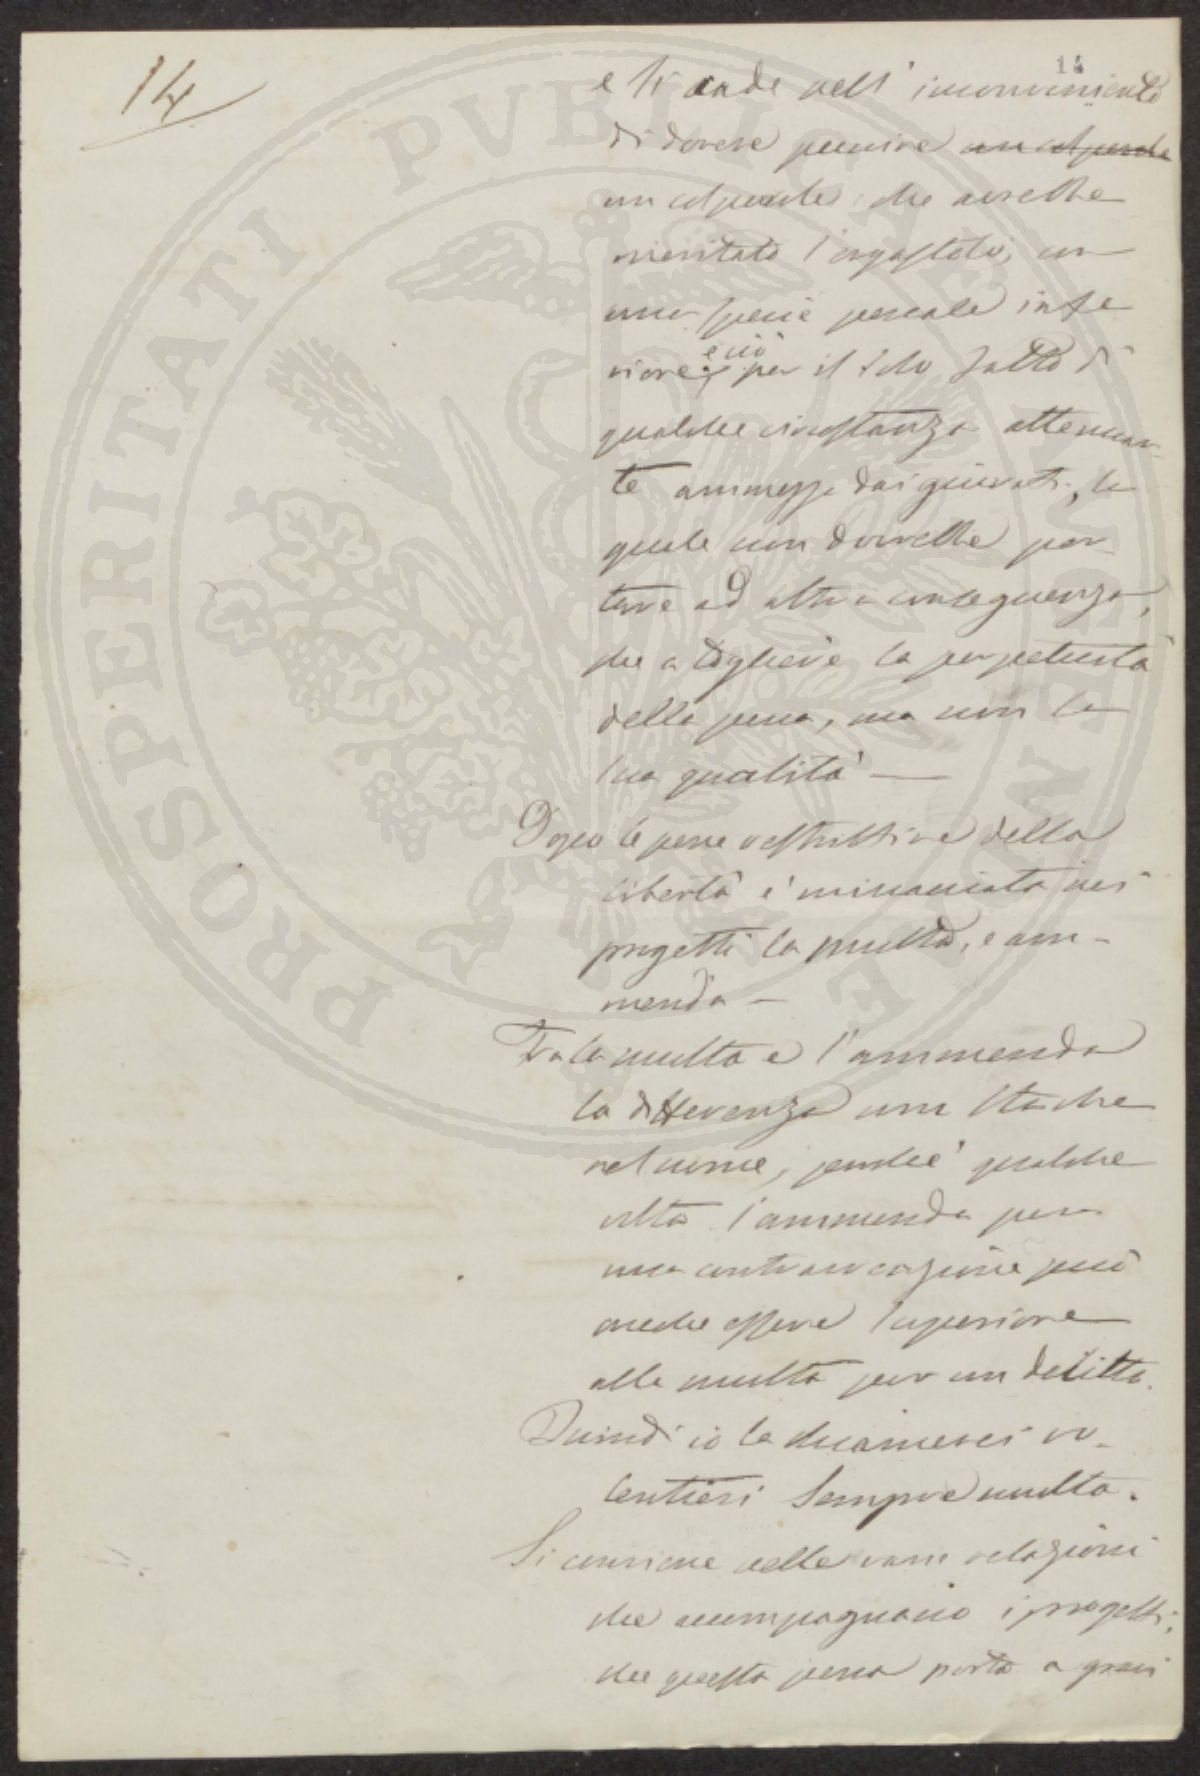 14
14
e si cade nell' inconveniente
di dovere punire un colpevole
un colpevole che avrebbe
meritato l'ergastolo, con
una specie penale infe
riore, e ciò per il solo fatto di
qualche circostanza attenuan-
te ammessa dai giurati, la
quale non dovrebbe por-
tare ad altra conseguenza,
che a togliere la perpetuità
della pena, ma non la
sua qualità —
Dopo le pene restrittive della
libertà è minacciata nei
progetti la multa, e am-
menda —
Tra la multa e l'ammenda
la differenza non sta che
nel nome, perchè qualche
volta l'ammenda per
una contravvenzione può
anche essere superiore
alla multa per un delitto.
Quindi io la chiamerei vo-
lentieri sempre multa.
Si conviene nelle varie relazioni
che accompagnano i progetti,
che questa pena porta a gravi
PROSPERITATI PUBLICAE